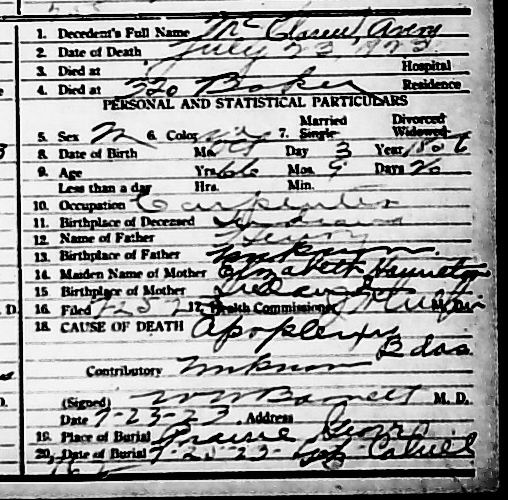 1. Decedent's Full Name McClaren, Avery
2. Date of Death July 23 1923
3. Died at Hospital
4. Died at 320 Baker Residence
PERSONAL AND STATISTICAL PARTICULARS
Married Divorced
5. Sex M 6. Color 7. Single Widowed
8. Date of Birth Mo. Oct Day 3 Year 1856
9. Age Yrs. 66 Mos. 9 Days 20
Less than a day Hrs. Min.
10. Occupation Carpenter
11. Birthplace of Deceased Indiana
12. Name of Father Henry
13. Birthplace of Father unknown
14. Maiden Name of Mother Elizabeth
15. Birthplace of Mother
16. Filed 7 25 2 17. Health Commissioner M. D.
18. CAUSE OF DEATH Apoplexy
8 das
Contributory unknown
(Signed) W W Barnett M. D.
Date 7-23-23 Address
19. Place of Burial Prairie Grove
20. Date of Burial 7-25-23